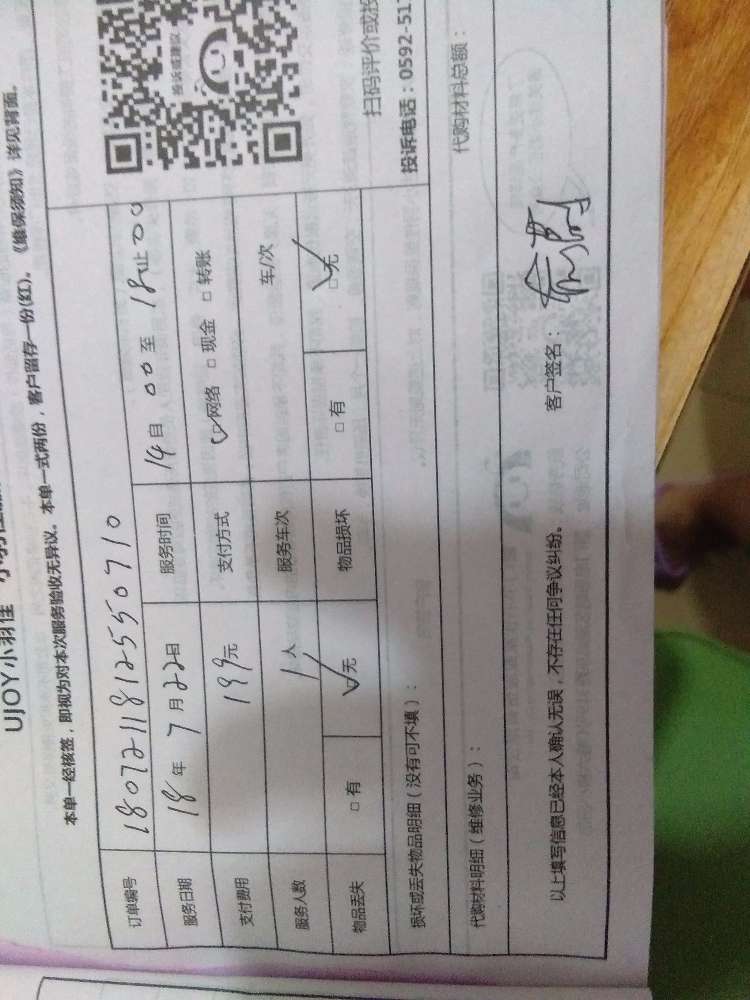 UJOY小羽佳
本单一经核签，即视为对本次服务验收无异议。本单一式两份，客户留存一份(红)。《维保须知》详见背面。
订单编号 180721181255507​10
服务日期 18年7月22日 服务时间 14自00至18止00
支付费用 199元 支付方式 ☑网络 □现金 □转账
服务人数 1人 服务车次 车/次
物品丢失 □有 ☑无 物品损坏 □有 ☑无
投诉或建议
扫码评价或投
投诉电话：0592-517
损坏或丢失物品明细（没有可不填）：
代购材料明细（维修业务）： 代购材料总额：
以上填写信息已经本人确认无误，不存在任何争议纠纷。 客户签名：